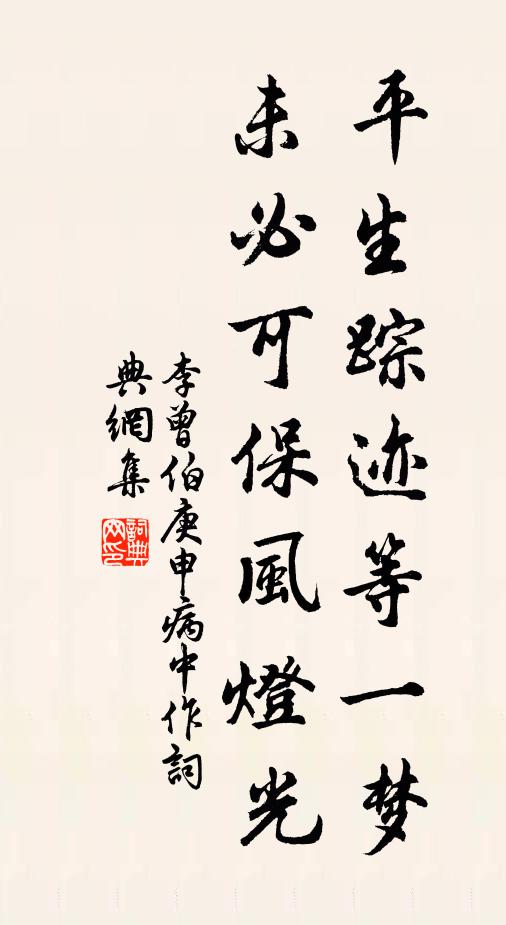 平生踪迹等一梦
未必可保風燈光
李曾伯庚申病中作詞
典網集
詞典网印